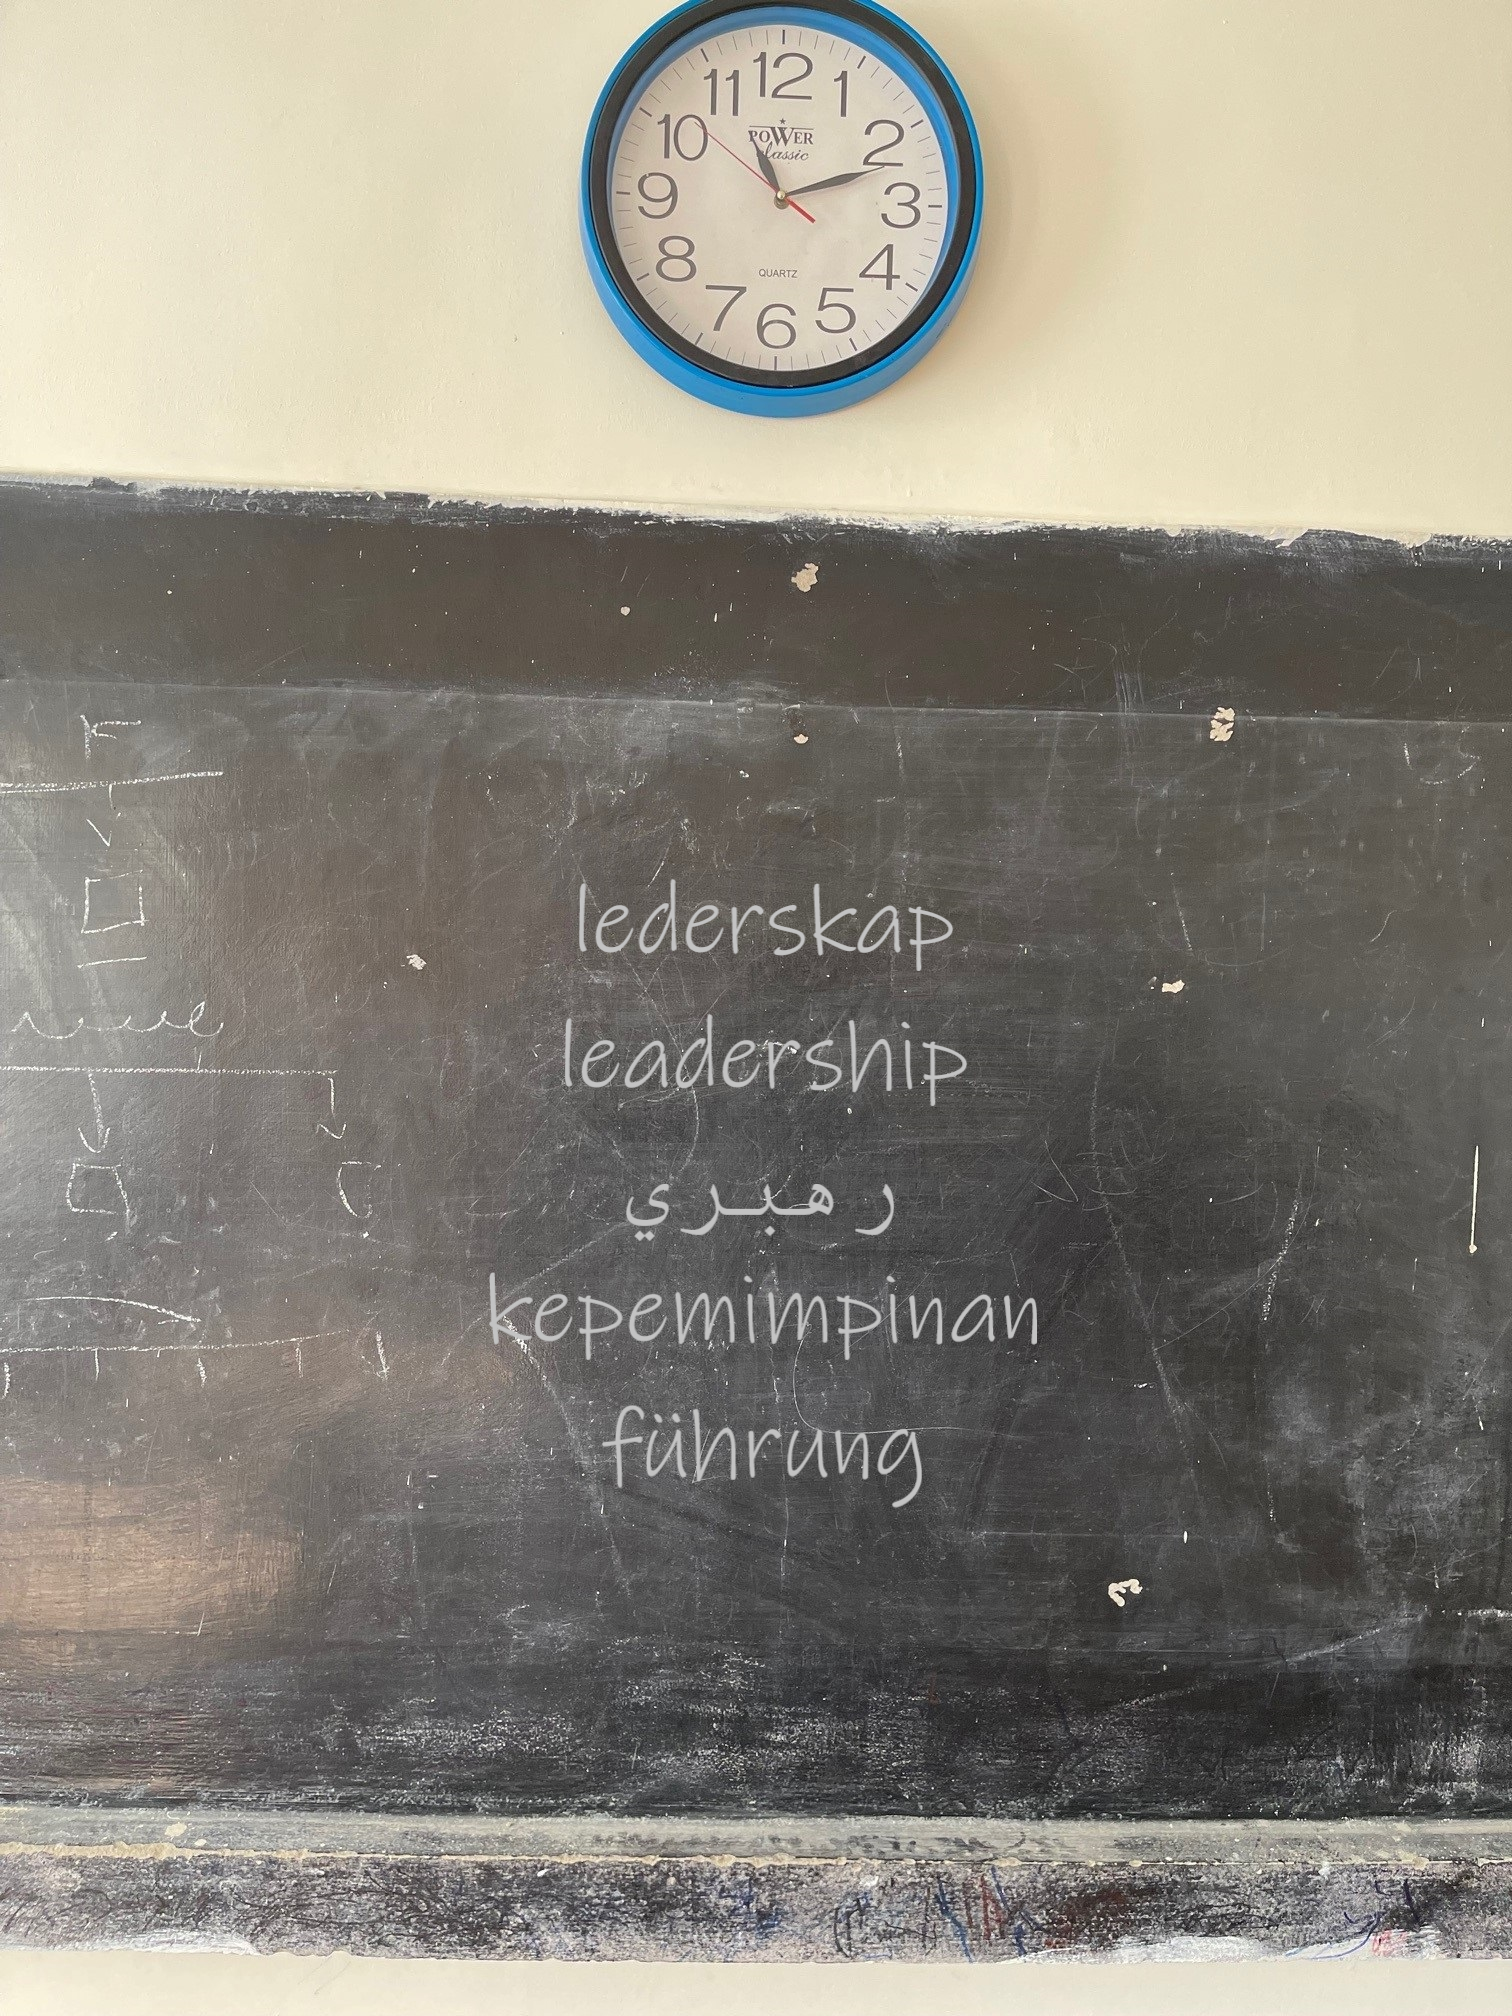 12
11 1
10 2
POWER
classic
9 3
8 4
QUARTZ
7 5
6
lederskap
leadership
رهبري
kepemimpinan
führung